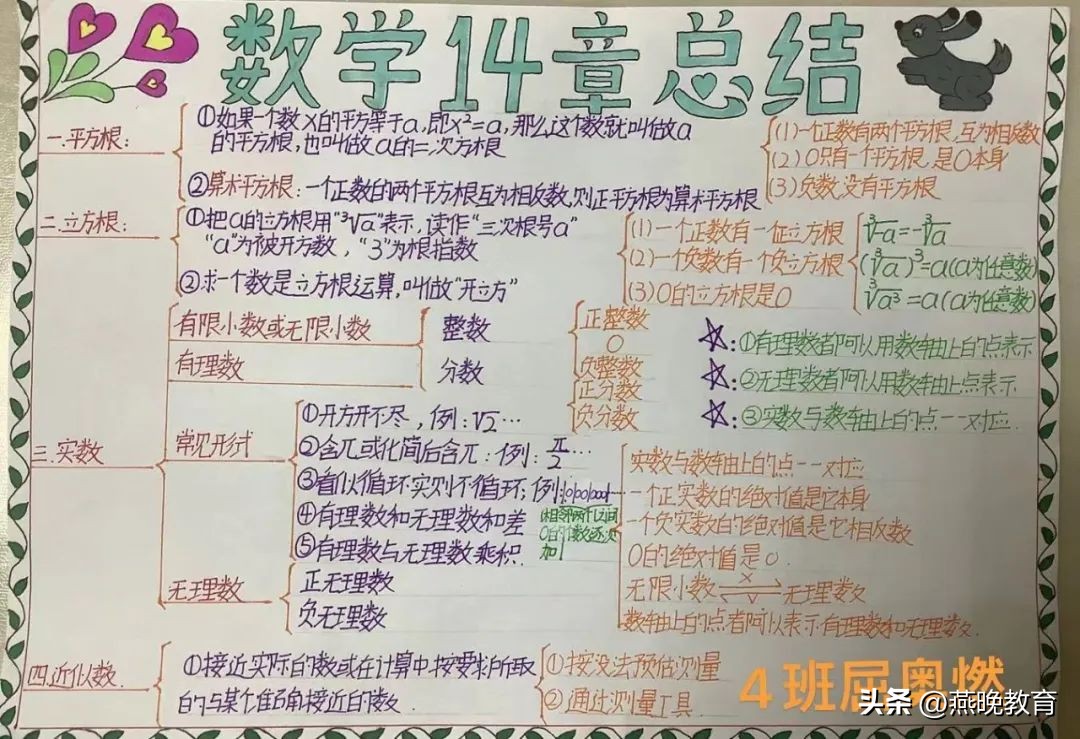 数学14章总结
一.平方根:
①如果一个数X的平方等于a,即X²=a,那么这个数就叫做a
的平方根,也叫做a的二次方根
②算术平方根:一个正数的两个平方根互为相反数,则正平方根为算术平方根
(1)一个正数有两个平方根,互为相反数
(2)0只有一个平方根,是0本身
(3)负数没有平方根
二.立方根:
①把a的立方根用"³√a"表示,读作"三次根号a"
"a"为被开方数,"3"为根指数
②求一个数是立方根运算,叫做"开立方"
(1)一个正数有一个正立方根
(2)一个负数有一个负立方根
(3)0的立方根是0
³√-a=-³√a
(³√a)³=a(a为任意数)
³√a³=a(a为任意数)
三.实数
有限小数或无限小数
有理数
整数
分数
正整数
0
负整数
正分数
负分数
☆:①有理数都可以用数轴上的点表示
☆:②无理数都可以用数轴上点表示
☆:③实数与数轴上的点一一对应.
常见形式
①开方开不尽,例:√2…
②含π或化简后含π:例:π/2…
③看似循环实则不循环;例:
(相邻两个1之间
0的个数逐次
加1
④有理数和无理数和差
⑤有理数与无理数乘积.
无理数
正无理数
负无理数
实数与数轴上的点一一对应
一个正实数的绝对值是它本身
一个负实数的绝对值是它相反数
0的绝对值是0.
无限小数⇌无理数
数轴上的点都可以表示有理数和无理数.
四.近似数.
①接近实际的数或在计算中按要求所取
的与某个准确接近的数.
①按没法预估测量
②通过测量工具.
4班屈奥燃
头条@燕晚教育